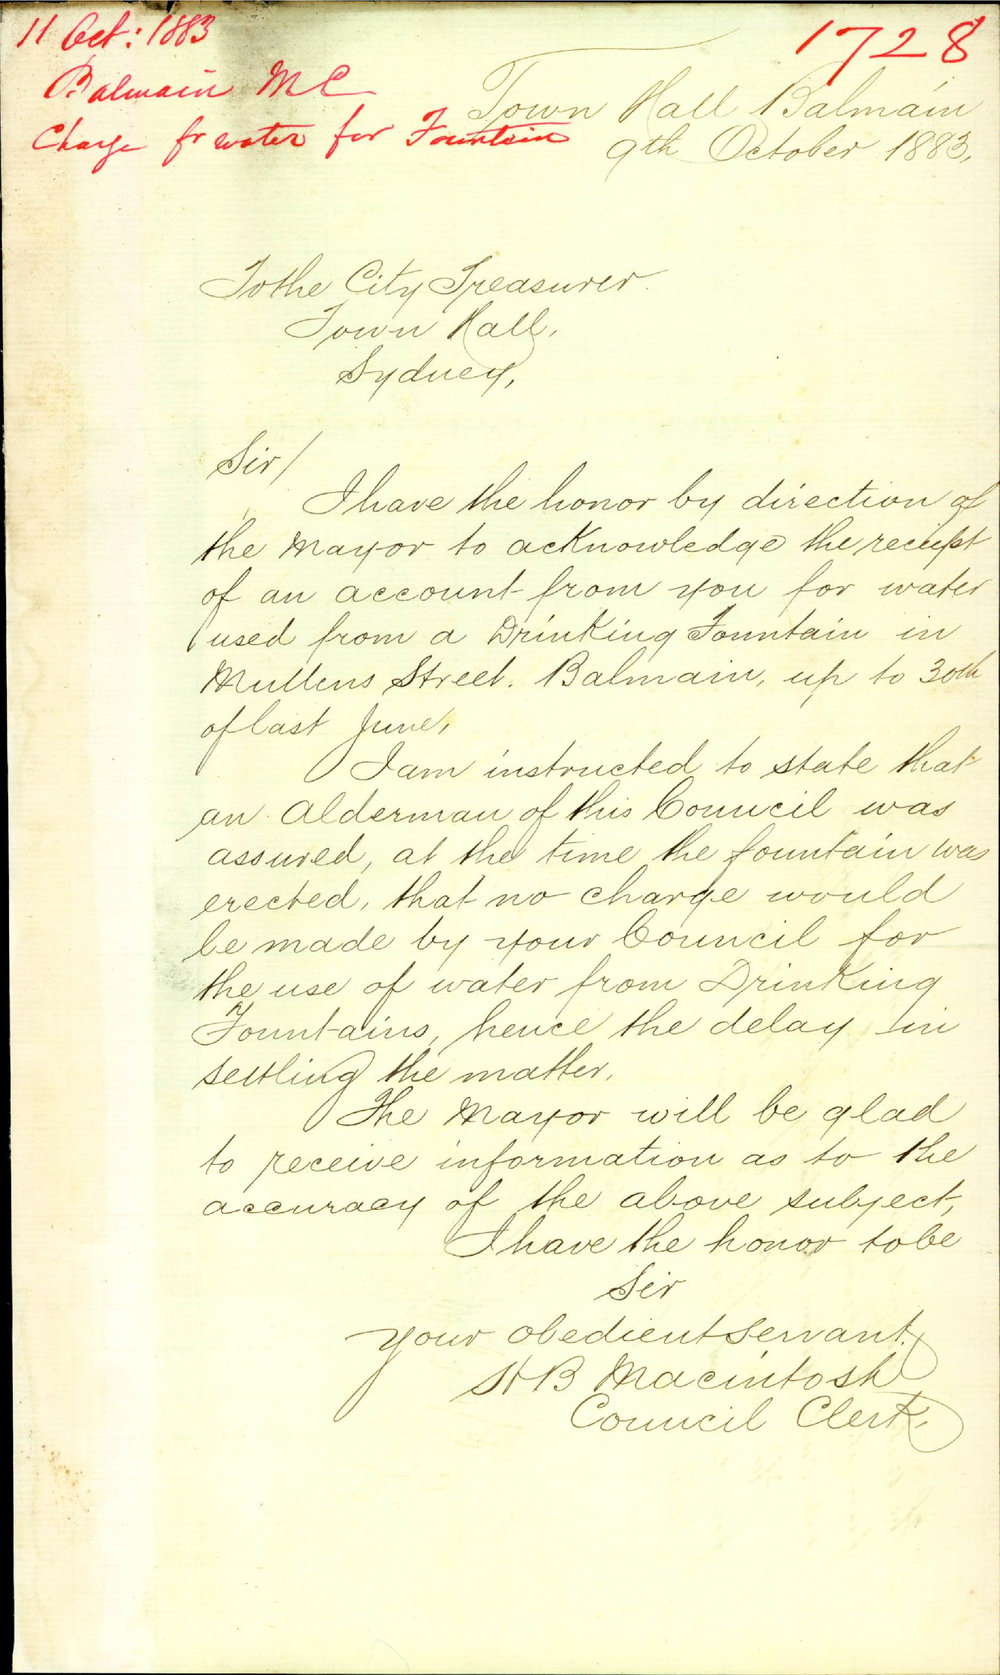 11 Oct: 1883
1728
Balmain M C
Charge fr water for Fountain
Town Hall Balmain
9th October 1883.
To the City Treasurer.
Town Hall,
Sydney,
Sir/
I have the honor by direction of
the Mayor to acknowledge the receipt
of an account from you for water
used from a Drinking Fountain in
Mullens Street. Balmain, up to 30th
of last June,
I am instructed to state that
an Alderman of this Council was
assured, at the time the fountain was
erected, that no charge would
be made by your Council for
the use of water from Drinking
Fountains, hence the delay in
settling the matter.
The Mayor will be glad
to receive information as to the
accuracy of the above subject,
I have the honor to be
Sir
your obedient servant.
Macintosh
Council Clerk.